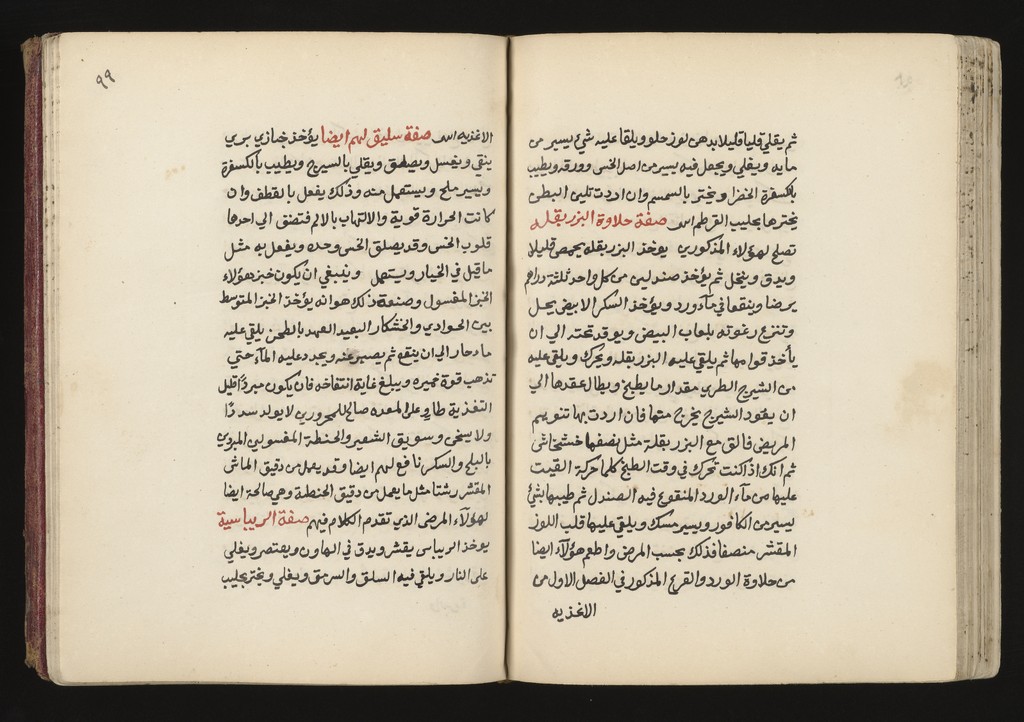 ثم يقلي قليا قليلا بدهن لوز حلو ويلقا عليه شئ يسير من
مايه ويغلي ويجعل فيه يسير من اصل الخس وورقه ويطيب
بالكسفرة الخضرا ويختر بالسمسم وان اردت تليين البطن
يخترها بحليب القرطم صفة حلاوة البزر بقله
تصلح لهؤلاء المذكورين يوخذ البزر بقله يحمص قليلا
ويدق وينخل ثم يؤخذ صندلين من كل واحد ثلثة دراهم
يرضا وينقعا في مآء ورد ويؤخذ السكر الابيض يحل
وتنزع رغوته بلعاب البيض ويوقد تحته الي ان
يأخذ قوامها ثم يلقي عليه البزر بقله ويحرك ويلقي عليه
من الشيرج الطري مقدار ما يطبخ ويطال عقدها الي
ان يعود الشيرج يخرج منها فان اردت بها تنويم
المريض فالق مع البزر بقلة مثل نصفها خشخاش
ثم انك اذا كنت تحرك في وقت الطبخ كلما حركة القيت
عليها من مآء الورد المنقوع فيه الصندل ثم طيبها بشئ
يسير من الكافور ويسير مسك ويلقي عليها قلب اللوز
المقشر منصفا فذلك بحسب المرض واطعم هؤلآء ايضا
من حلاوة الورد والقرع المذكور في الفصل الاول من
الاغذيه
٩٩
الاغذيه صفة سليق لهم ايضا يؤخذ خبازي بري
ينقي ويغسل ويصلق ويقلي بالسيرج ويطيب بالكسفرة
ويسير ملح ويستعمل منه وذلك يفعل بالقطف وان
كانت الحرارة قوية والالتهاب بالالم فتضيف الي احدها
قلوب الخس وقد يصلق الخس وحده ويفعل به مثل
ما قيل في الخيار ويستعمل وينبغي ان يكون خبز هؤلاء
الخبز المغسول وصنعة ذلك هو انه يؤخذ الخبز المتوسط
بين الحوادي والخشكار البعيد العهد بالطحن يلقي عليه
ماء حار الي ان ينقع ثم يصير عنه ويجدد عليه المآء حتي
تذهب قوة خميره ويبلغ غاية انتفاخه فان يكون مبردا قليل
التغذية طاو علي المعده صالح للمحرورين لا يولد سددا
ولا يسخن وسويق الشعير والحنطة المغسولين المبردين
بالثلج والسكر نافع لهم ايضا وقد يعمل من دقيق الماش
المقشر رشتا مثل ما يعمل من دقيق الحنطة وهي صالحة ايضا
لهؤلآء المرضي الذي تقدم الكلام فيهم صفة الريباسية
يوخذ الريباس يقشر ويدق في الهاون ويعتصر ويغلي
علي النار ويلقي فيه السلق والسرمق ويغلي ويختر بحليب